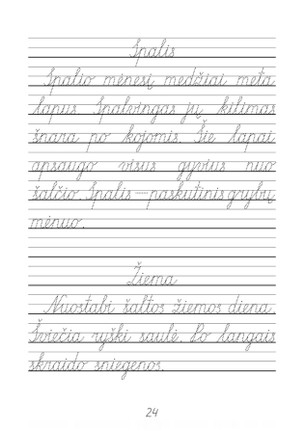 Spalis
Spalio mėnesį medžiai meta
lapus. Spalvingas jų kilimas
šnara po kojomis. Šie lapai
apsaugo visus gyvius nuo
šalčio. Spalis – paskutinis grybų
mėnuo.
Žiema
Nuostabi šaltos žiemos diena.
Šviečia ryški saulė. Po langais
skraido sniegenos.
24